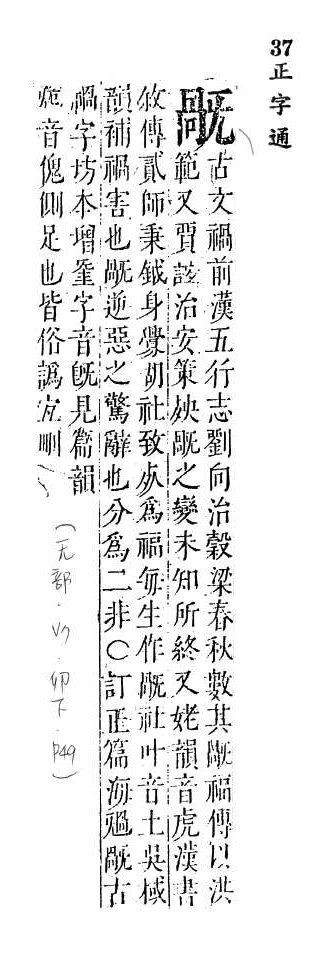 37 正字通
旤
古文禍前漢五行志劉向治穀梁春秋數其旤福傳以洪
範又賈誼治安策殃旤之變未知所終又姥韻音虎漢書
敘傳貳師秉鉞身釁胡社致死爲福每生作旤社叶音土吳棫
韻補禍害也旤逆惡之驚辭也分爲二非○訂正篇海旤古
禍字坊本增字音旣見篇韻
音傀側足也皆俗譌宜刪
(无部.V7.卯下.p49)